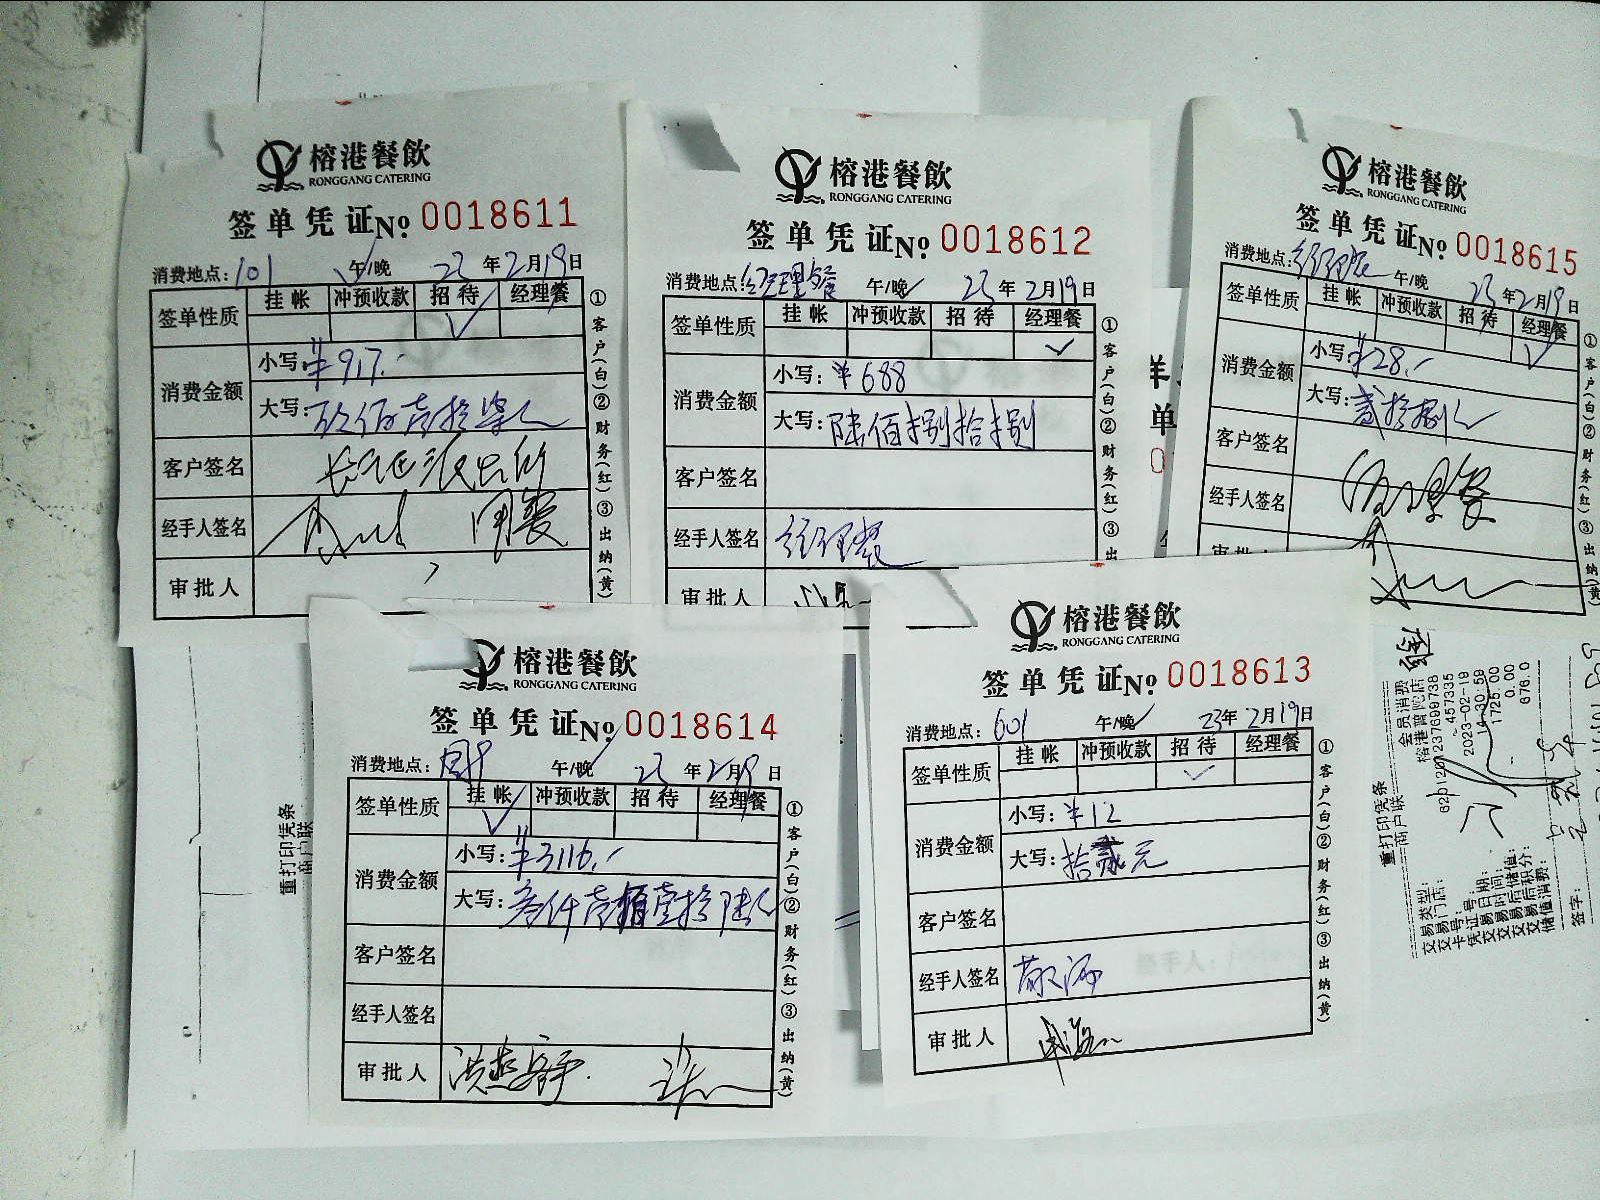 榕港餐飲
RONGGANG CATERING
签单凭证No. 0018611
消费地点: 101 午/晚 23年2月19日
签单性质 挂帐 冲预收款 招待 经理餐
✓
消费金额
小写: ¥917.-
大写: 玖佰壹拾柒元
客户签名
经手人签名
审批人
①客户(白)②财务(红)③出纳(黄)
榕港餐飲
RONGGANG CATERING
签单凭证No. 0018612
消费地点: 经理餐 午/晚 23年2月19日
签单性质 挂帐 冲预收款 招待 经理餐
✓
消费金额
小写: ¥688
大写: 陆佰捌拾捌
客户签名
经手人签名 经理餐
审批人
①客户(白)②财务(红)③出
榕港餐飲
RONGGANG CATERING
签单凭证No. 0018615
消费地点: 午/晚 23年2月19日
签单性质 挂帐 冲预收款 招待 经理餐
✓
消费金额
小写: ¥28.-
大写: 贰拾捌元
客户签名
经手人签名
审批人
①客户(白)②财务(红)③出纳(黄)
榕港餐飲
RONGGANG CATERING
签单凭证No. 0018614
消费地点: 午/晚 23年2月19日
签单性质 挂帐 冲预收款 招待 经理餐
✓
消费金额
小写: ¥3116.-
大写: 叁仟壹佰壹拾陆元
客户签名
经手人签名
审批人
①客户(白)②财务(红)③出纳(黄)
榕港餐飲
RONGGANG CATERING
签单凭证No. 0018613
消费地点: 601 午/晚 23年2月19日
签单性质 挂帐 冲预收款 招待 经理餐
✓
消费金额
小写: ¥12
大写: 拾贰元
客户签名
经手人签名
审批人
①客户(白)②财务(红)③出纳(黄)
重打印凭条
商户联
重打印凭条
商户联
交易类型: 会员消费
交易门店: 榕港普陀店
卡号: 6201201237699738
凭证号: 457335
交易日期: 2023-02-19
交易时间: 14:30:58
交易后储值: 1725.00
交易后积分: 0.00
储值消费: 676.0
签字: